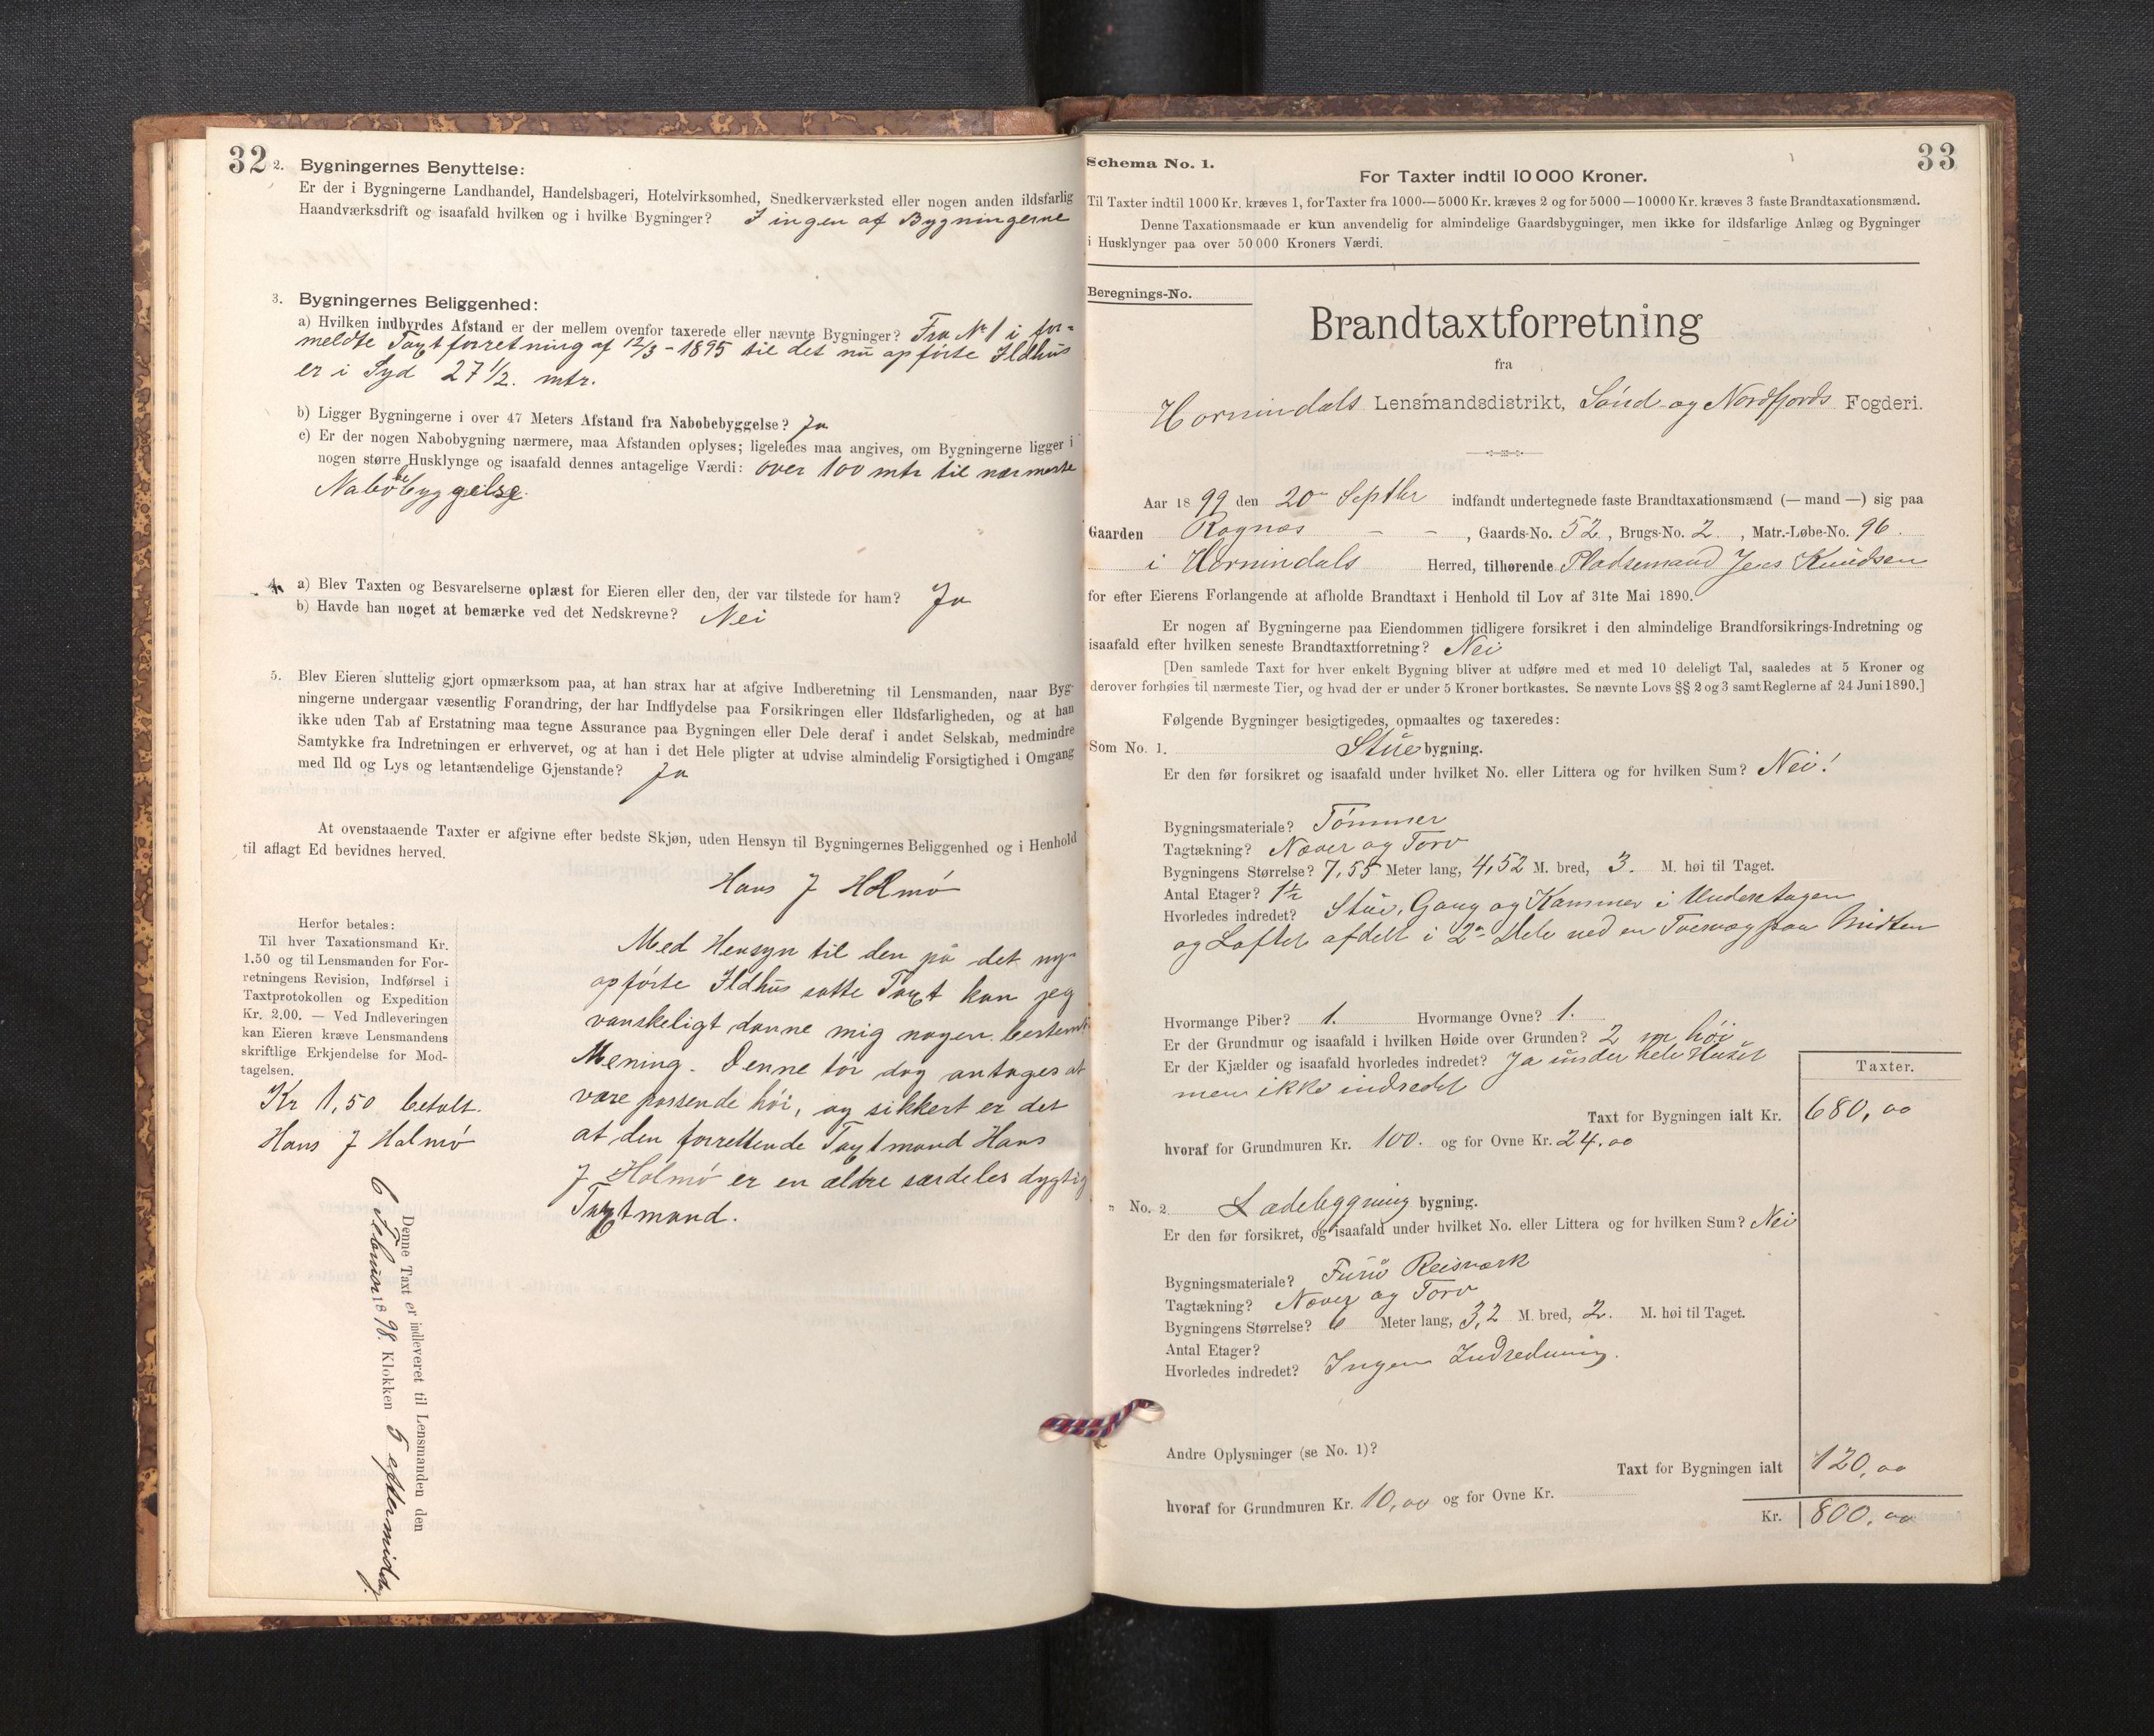 32
2. Bygningernes Benyttelse:
Er der i Bygningerne Landhandel, Handelsbageri, Hotelvirksomhed, Snedkerværksted eller nogen anden ildsfarlig
Haandværksdrift og isaafald hvilken og i hvilke Bygninger? I ingen af Bygningerne
3. Bygningernes Beliggenhed:
a) Hvilken indbyrdes Afstand er der mellem ovenfor taxerede eller nævnte Bygninger? Fra No 1 i for-
meldte Taxtforretning af 12/3 - 1895 til det nu opførte Ildhus
er i Syd 27 1/2. mtr.
b) Ligger Bygningerne i over 47 Meters Afstand fra Nabobebyggelse? Ja
c) Er der nogen Nabobygning nærmere, maa Afstanden oplyses; ligeledes maa angives, om Bygningerne ligger i
nogen større Husklynge og isaafald dennes antagelige Værdi: over 100 mtr til nærmeste
Nabobebyggelse.
4. a) Blev Taxten og Besvarelserne oplæst for Eieren eller den, der var tilstede for ham? Ja
b) Havde han noget at bemærke ved det Nedskrevne? Nei
5. Blev Eieren sluttelig gjort opmærksom paa, at han strax har at afgive Indberetning til Lensmanden, naar Byg-
ningerne undergaar væsentlig Forandring, der har Indflydelse paa Forsikringen eller Ildsfarligheden, og at han
ikke uden Tab af Erstatning maa tegne Assurance paa Bygningen eller Dele deraf i andet Selskab, medmindre
Samtykke fra Indretningen er erhvervet, og at han i det Hele pligter at udvise almindelig Forsigtighed i Omgang
med Ild og Lys og letantændelige Gjenstande? Ja
At ovenstaaende Taxter er afgivne efter bedste Skjøn, uden Hensyn til Bygningernes Beliggenhed og i Henhold
til aflagt Ed bevidnes herved.
Hans J Holmø
Herfor betales:
Til hver Taxationsmand Kr.
1.50 og til Lensmanden for For-
retningens Revision, Indførsel i
Taxtprotokollen og Expedition
Kr. 2.00. — Ved Indleveringen
kan Eieren kræve Lensmandens
skriftlige Erkjendelse for Mod-
tagelsen.
Kr 1,50 betalt.
Hans J Holmø
Med Hensyn til den på det ny-
opførte Ildhus satte Taxt kan jeg
vanskeligt danne mig nogen bestemt
Mening. Denne tør dog antages at
være passende høi, og sikkert er det
at den forrettende Taxtmand Hans
J Holmø er en ældre særdeles dygtig
Taxtmand.
Denne Taxt er indleveret til Lensmanden den
6 Februar 1898. Klokken 5 eftermiddag.
33
Schema No. 1.
For Taxter indtil 10 000 Kroner.
Til Taxter indtil 1000 Kr. kræves 1, for Taxter fra 1000—5000 Kr. kræves 2 og for 5000—10000 Kr. kræves 3 faste Brandtaxationsmænd.
Denne Taxationsmaade er kun anvendelig for almindelige Gaardsbygninger, men ikke for ildsfarlige Anlæg og Bygninger
i Husklynger paa over 50 000 Kroners Værdi.
Beregnings-No.
Brandtaxtforretning
fra
Hornindals Lensmandsdistrikt, Sønd- og Nordfjords Fogderi.
Aar 1899 den 20de Septbr indfandt undertegnede faste Brandtaxationsmænd (—mand—) sig paa
Gaarden Rognæs - - , Gaards-No. 52, Brugs-No. 2, Matr.-Løbe-No. 96.
i Hornindals Herred, tilhørende Pladsemand Jens Knudsen
for efter Eierens Forlangende at afholde Brandtaxt i Henhold til Lov af 31te Mai 1890.
Er nogen af Bygningerne paa Eiendommen tidligere forsikret i den almindelige Brandforsikrings-Indretning og
isaafald efter hvilken seneste Brandtaxtforretning? Nei
[Den samlede Taxt for hver enkelt Bygning bliver at udføre med et med 10 deleligt Tal, saaledes at 5 Kroner og
derover forhøies til nærmeste Tier, og hvad der er under 5 Kroner bortkastes. Se nævnte Lovs §§ 2 og 3 samt Reglerne af 24 Juni 1890.]
Følgende Bygninger besigtigedes, opmaaltes og taxeredes:
Som No. 1. Stue bygning.
Er den før forsikret og isaafald under hvilket No. eller Littera og for hvilken Sum? Nei!
Bygningsmateriale? Tømmer
Tagtækning? Næver og Torv
Bygningens Størrelse? 7,55 Meter lang, 4,52 M. bred, 3. M. høi til Taget.
Antal Etager? 1 1/2
Hvorledes indredet? Stue, Gang og Kammer i Underetagen
og Loftet afdelt i 2 Dele ved en Tverveg paa Midten
Hvormange Piber? 1. Hvormange Ovne? 1.
Er der Grundmur og isaafald i hvilken Høide over Grunden? 2 m høi
Er der Kjælder og isaafald hvorledes indredet? Ja under hele Huset
men ikke indredet
Taxter.
Taxt for Bygningen ialt Kr. 680,00
hvoraf for Grundmuren Kr. 100. og for Ovne Kr. 24.00
" No. 2 bygning.
Er den før forsikret, og isaafald under hvilket No. eller Littera og for hvilken Sum? Nei
Bygningsmateriale? Furu Reisværk
Tagtækning? Næver og Torv
Bygningens Størrelse? 6 Meter lang, 3,2 M. bred, 2. M. høi til Taget.
Antal Etager?
Hvorledes indredet? Ingen Indredning.
Andre Oplysninger (se No. 1)?
Taxt for Bygningen ialt 120,00
hvoraf for Grundmuren Kr. 10,00 og for Ovne Kr.
Kr. 800,00